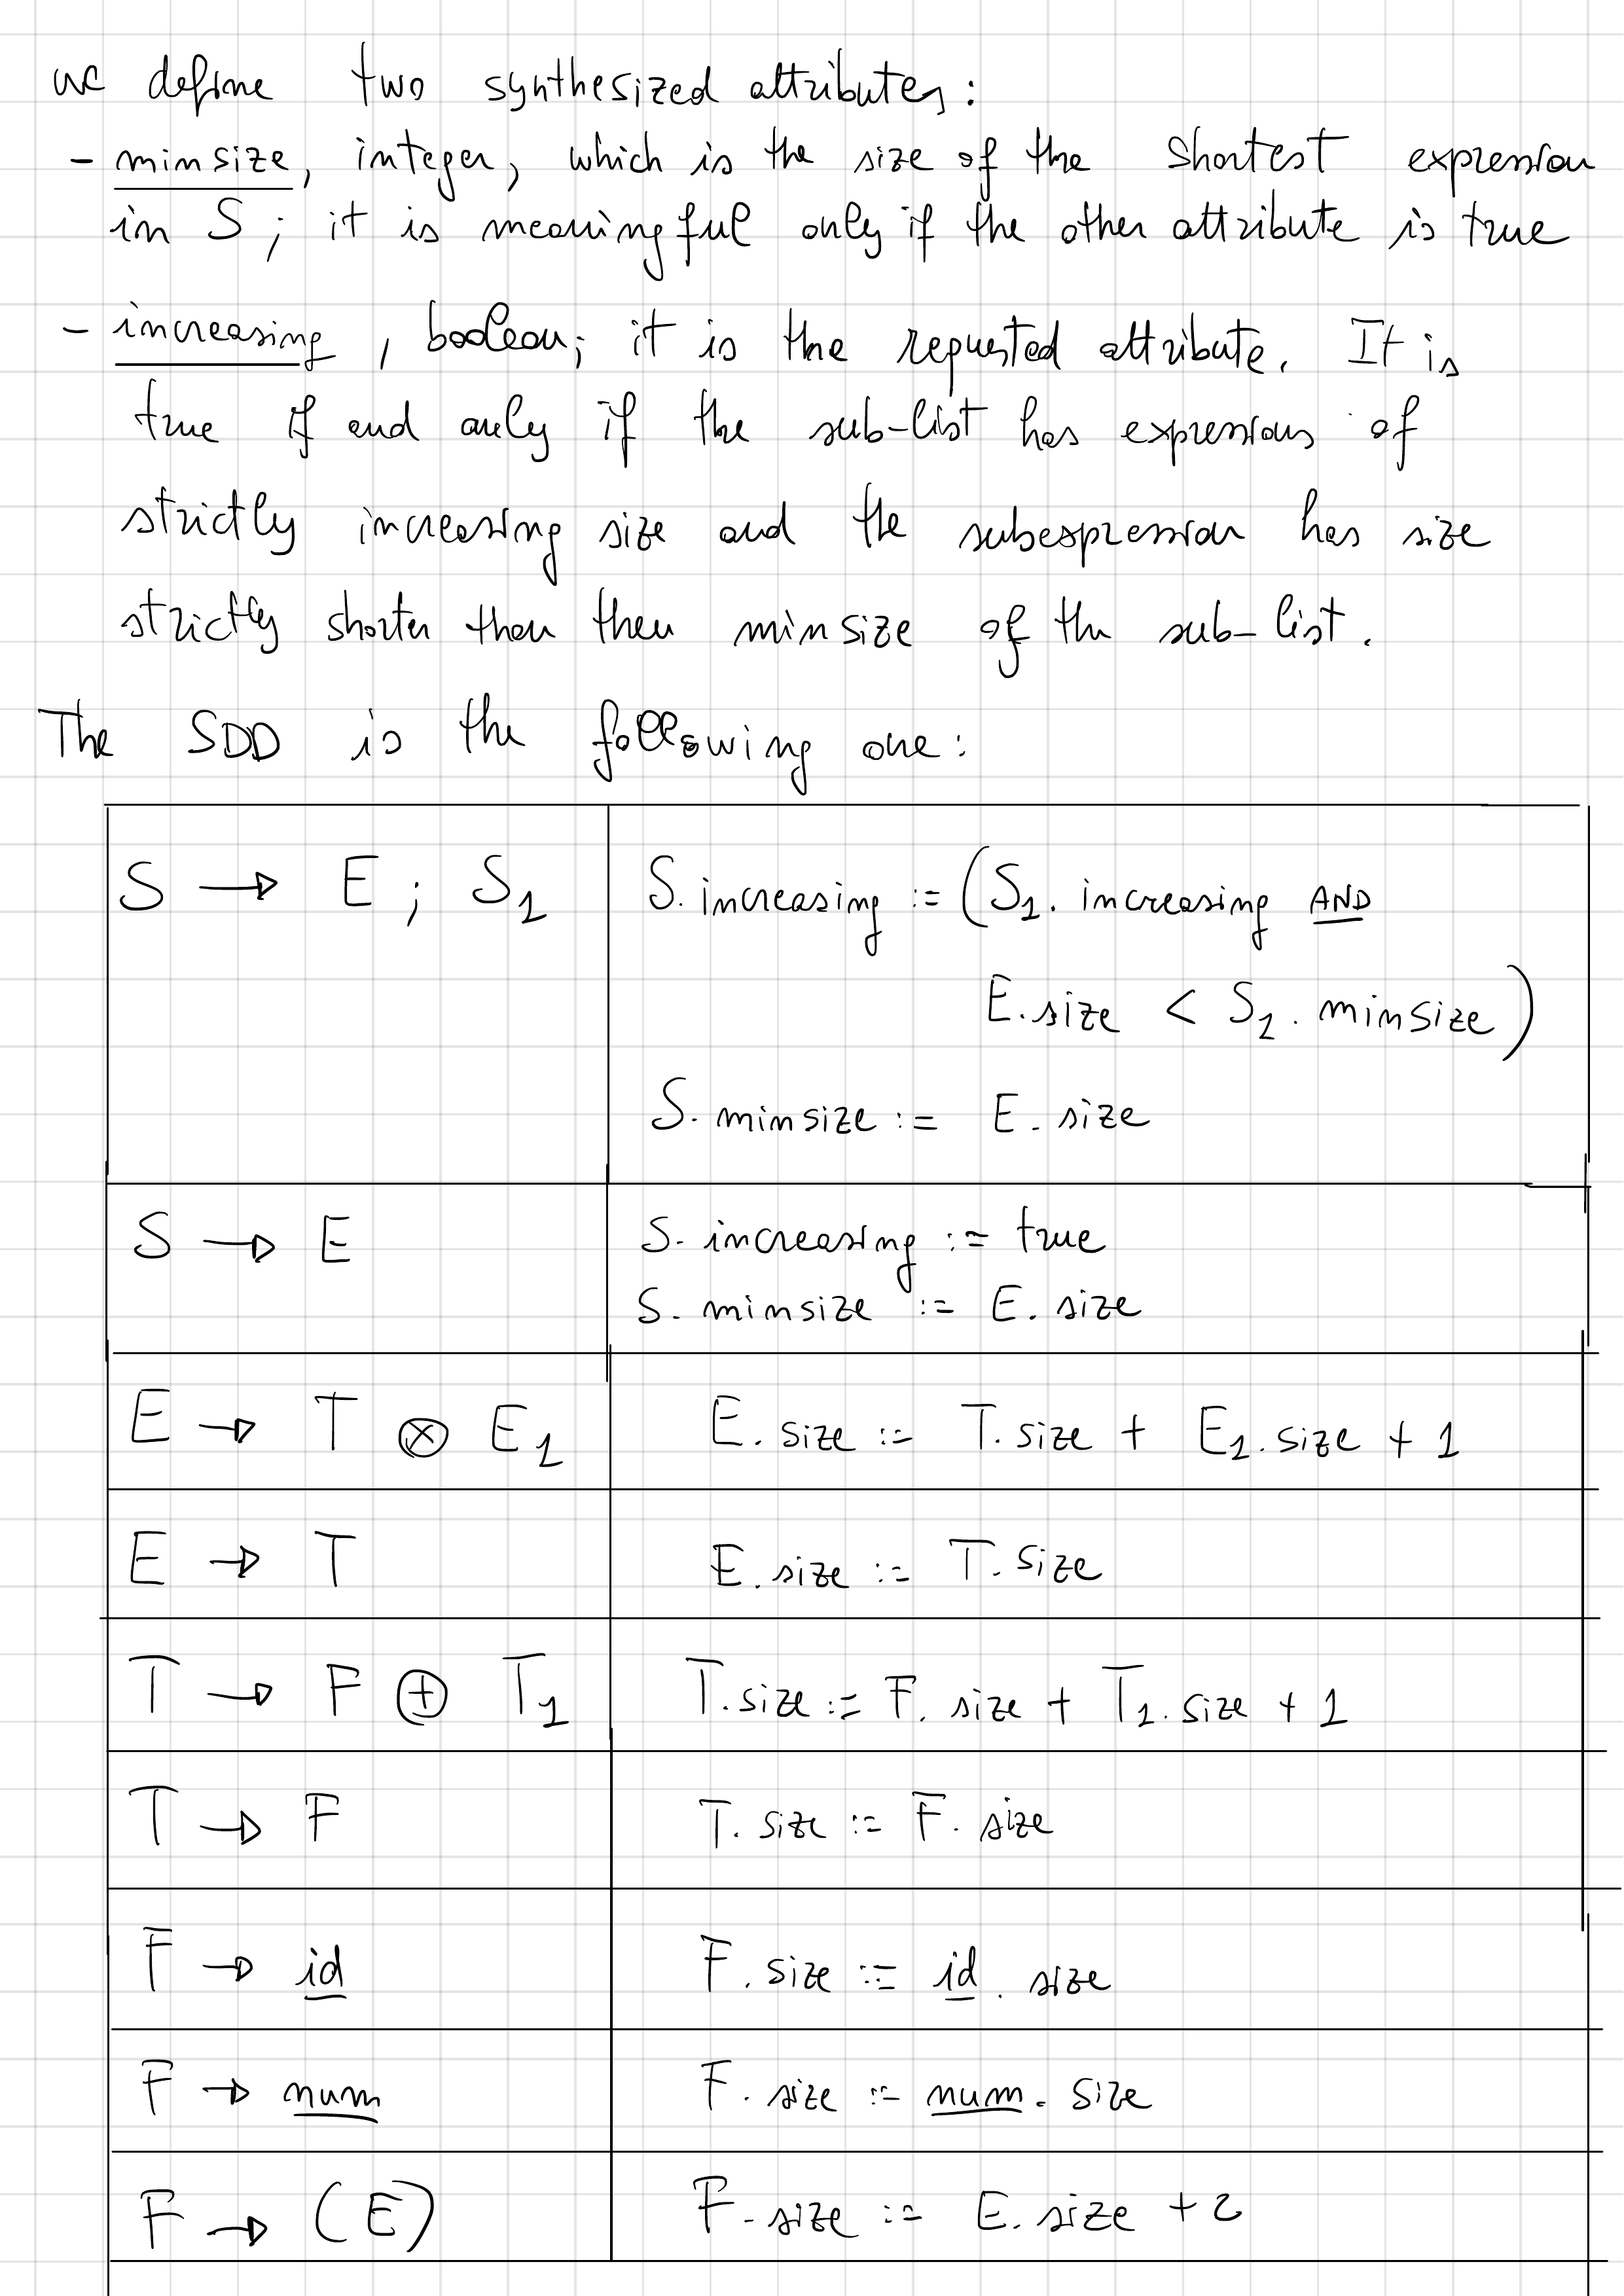 we define two synthesized attributes:
- minsize, integer, which is the size of the shortest expression
in S; it is meaningful only if the other attribute is true
- increasing, boolean; it is the requested attribute. It is
true if and only if the sub-list has expressions of
strictly increasing size and the subespression has size
strictly shorter than then minsize of the sub-list.
The SDD is the following one:
S → E ; S1 S.increasing := (S1.increasing AND
E.size < S1.minsize)
S.minsize := E.size
S → E S.increasing := true
S.minsize := E.size
E → T ⊗ E1 E.size := T.size + E1.size + 1
E → T E.size := T.size
T → F ⊕ T1 T.size := F.size + T1.size + 1
T → F T.size := F.size
F → id F.size := id.size
F → num F.size := num.size
F → (E) F.size := E.size + 2